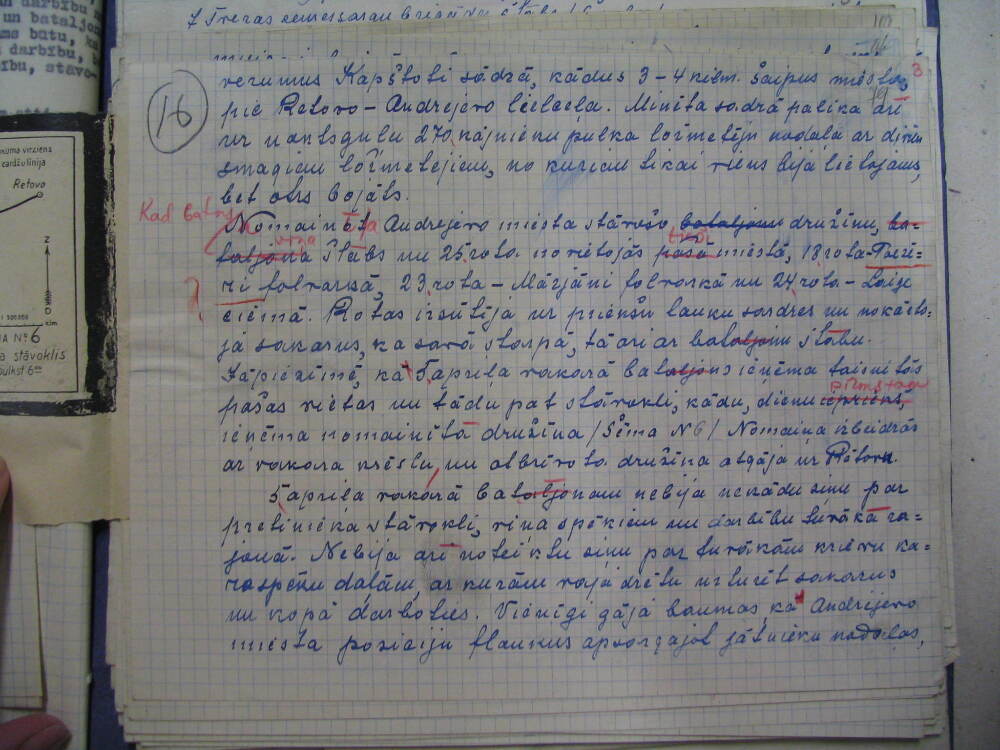 n darbību
un bataljon
ams batu, ka
darbību,
ību, stavo-
kuma virziens
zardžu līnija
Retovo
Z
Kim
A No 6
a stāvoklis
pulkst 6
16
3
rezumus Kapštobi sādžā, kādus 3-4 kilm. šaipus miesta,
pie Retovo-Andrejevo lielceļa. Minētā sādžā palika arī
uz naktsguļu 270. kājnieku pulka ložmetēju nodaļa ar diviem
smagiem ložmetējiem, no kuriem tikai viens bija lietojams,
bet otrs bojāts.
Kad batas
Nomainot Andrejevo miesta stāvošo bataljonu družīnu, ba-
viņa
taljona štābs un 25 rota novietojās pašā miestā, 18 rota - Tveri-
? ri folvarkā, 23. rota - Marjāni folvarkā un 24. rota - Laigi
ciemā. Rotas izsūtīja uz priekšu lauku sardzes un nokārto-
ja sakarus, kā savā starpā, tā arī ar bataljona štābu.
Jāpiezīmē, kā 5 aprīļa vakarā bataljons ieņēma taisni tās
pirms tam
pašas vietas un tādu pat stāvokli, kādu, dienu iepriekš,
ieņēma nomainītā družīna /Šēma N6/ Nomaiņa izbeidzās
ar vakara krēslu, un atbrīvotā družīna atgāja uz Retovu.
5 aprīļa vakarā bataljonam nebija nekādu ziņu par
pretinieka stāvokli, viņa spēkiem un darbību tuvākā ra-
jonā. Nebija arī noteiktu ziņu par tuvākām krievu ka-
raspēku daļām, ar kurām vajadzētu uzturēt sakarus
un kopā darboties. Vienīgi gāja baumas, kā Andrejevo
miesta poziciju flankus apsargājot jātnieku nodaļas,